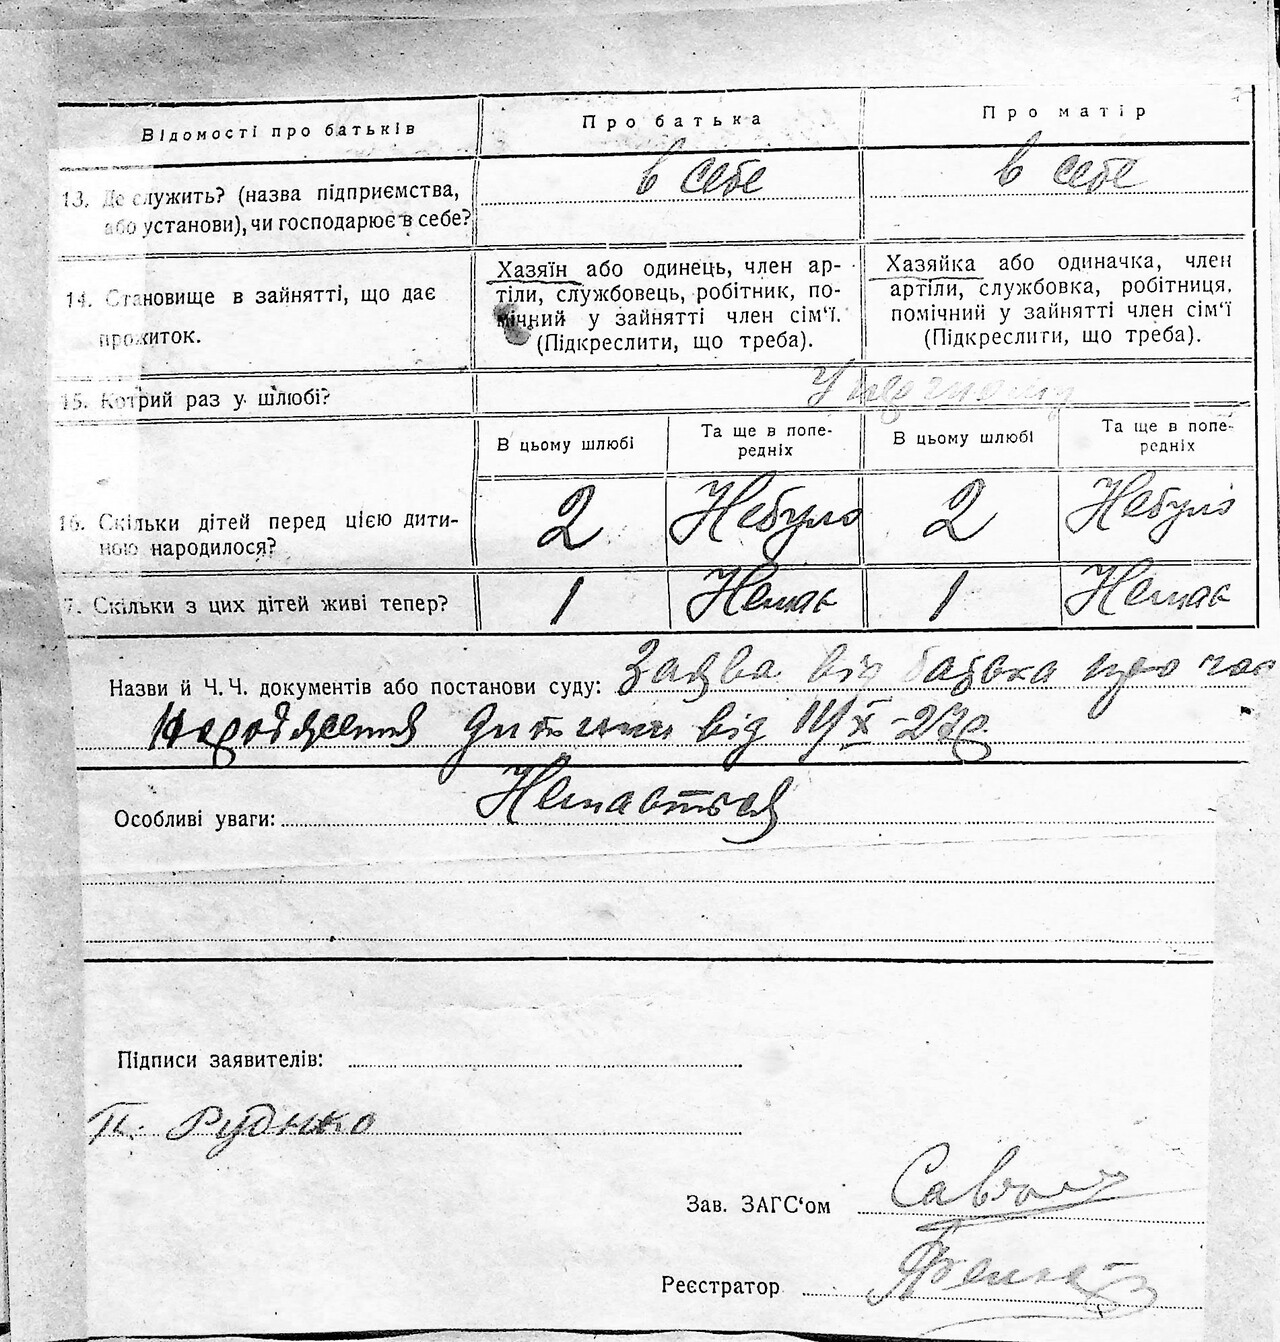 Відомості про батьків
Про батька
Про матір
13. Де служить? (назва підприємства,
або установи), чи господарює в себе?
в себе
в себе
14. Становище в зайнятті, що дає
прожиток.
Хазяїн або одинець, член ар-
тіли, службовець, робітник, по-
мічний у зайнятті член сім'ї.
(Підкреслити, що треба).
Хазяйка або одиначка, член
артіли, службовка, робітниця,
помічний у зайнятті член сім'ї
(Підкреслити, що треба).
15. Котрий раз у шлюбі?
В цьому шлюбі
Та ще в попе-
редніх
В цьому шлюбі
Та ще в попе-
редніх
16. Скільки дітей перед цією дити-
ною народилося?
2
Небуло
2
Небуло
7. Скільки з цих дітей живі тепер?
1
Немає
1
Немає
Назви й Ч. Ч. документів або постанови суду: Заява від батька про час
народження дитини від
Особливі уваги:
Підписи заявителів:
П. Рудько
Зав. ЗАГС'ом
Реєстратор